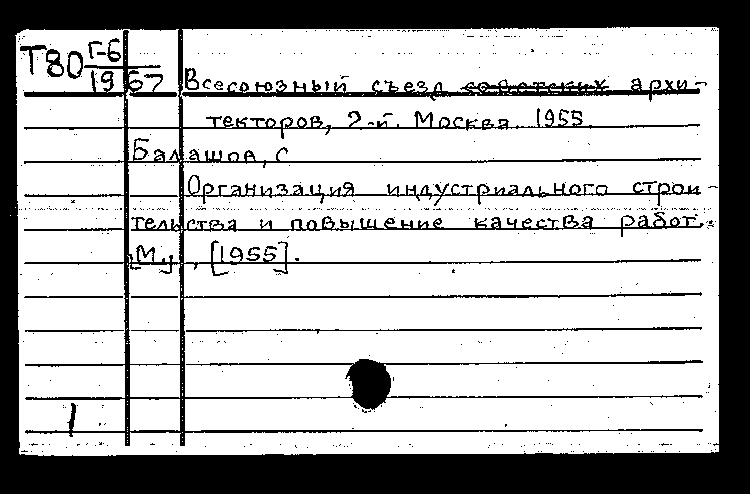 Т80 Г-6
1967 Всесоюзный съезд советских архи-
текторов, 2-й. Москва. 1955
Балашов, С
Организация индустриального строи-
тельства и повышение качества работ.
[М.], [1955].
1